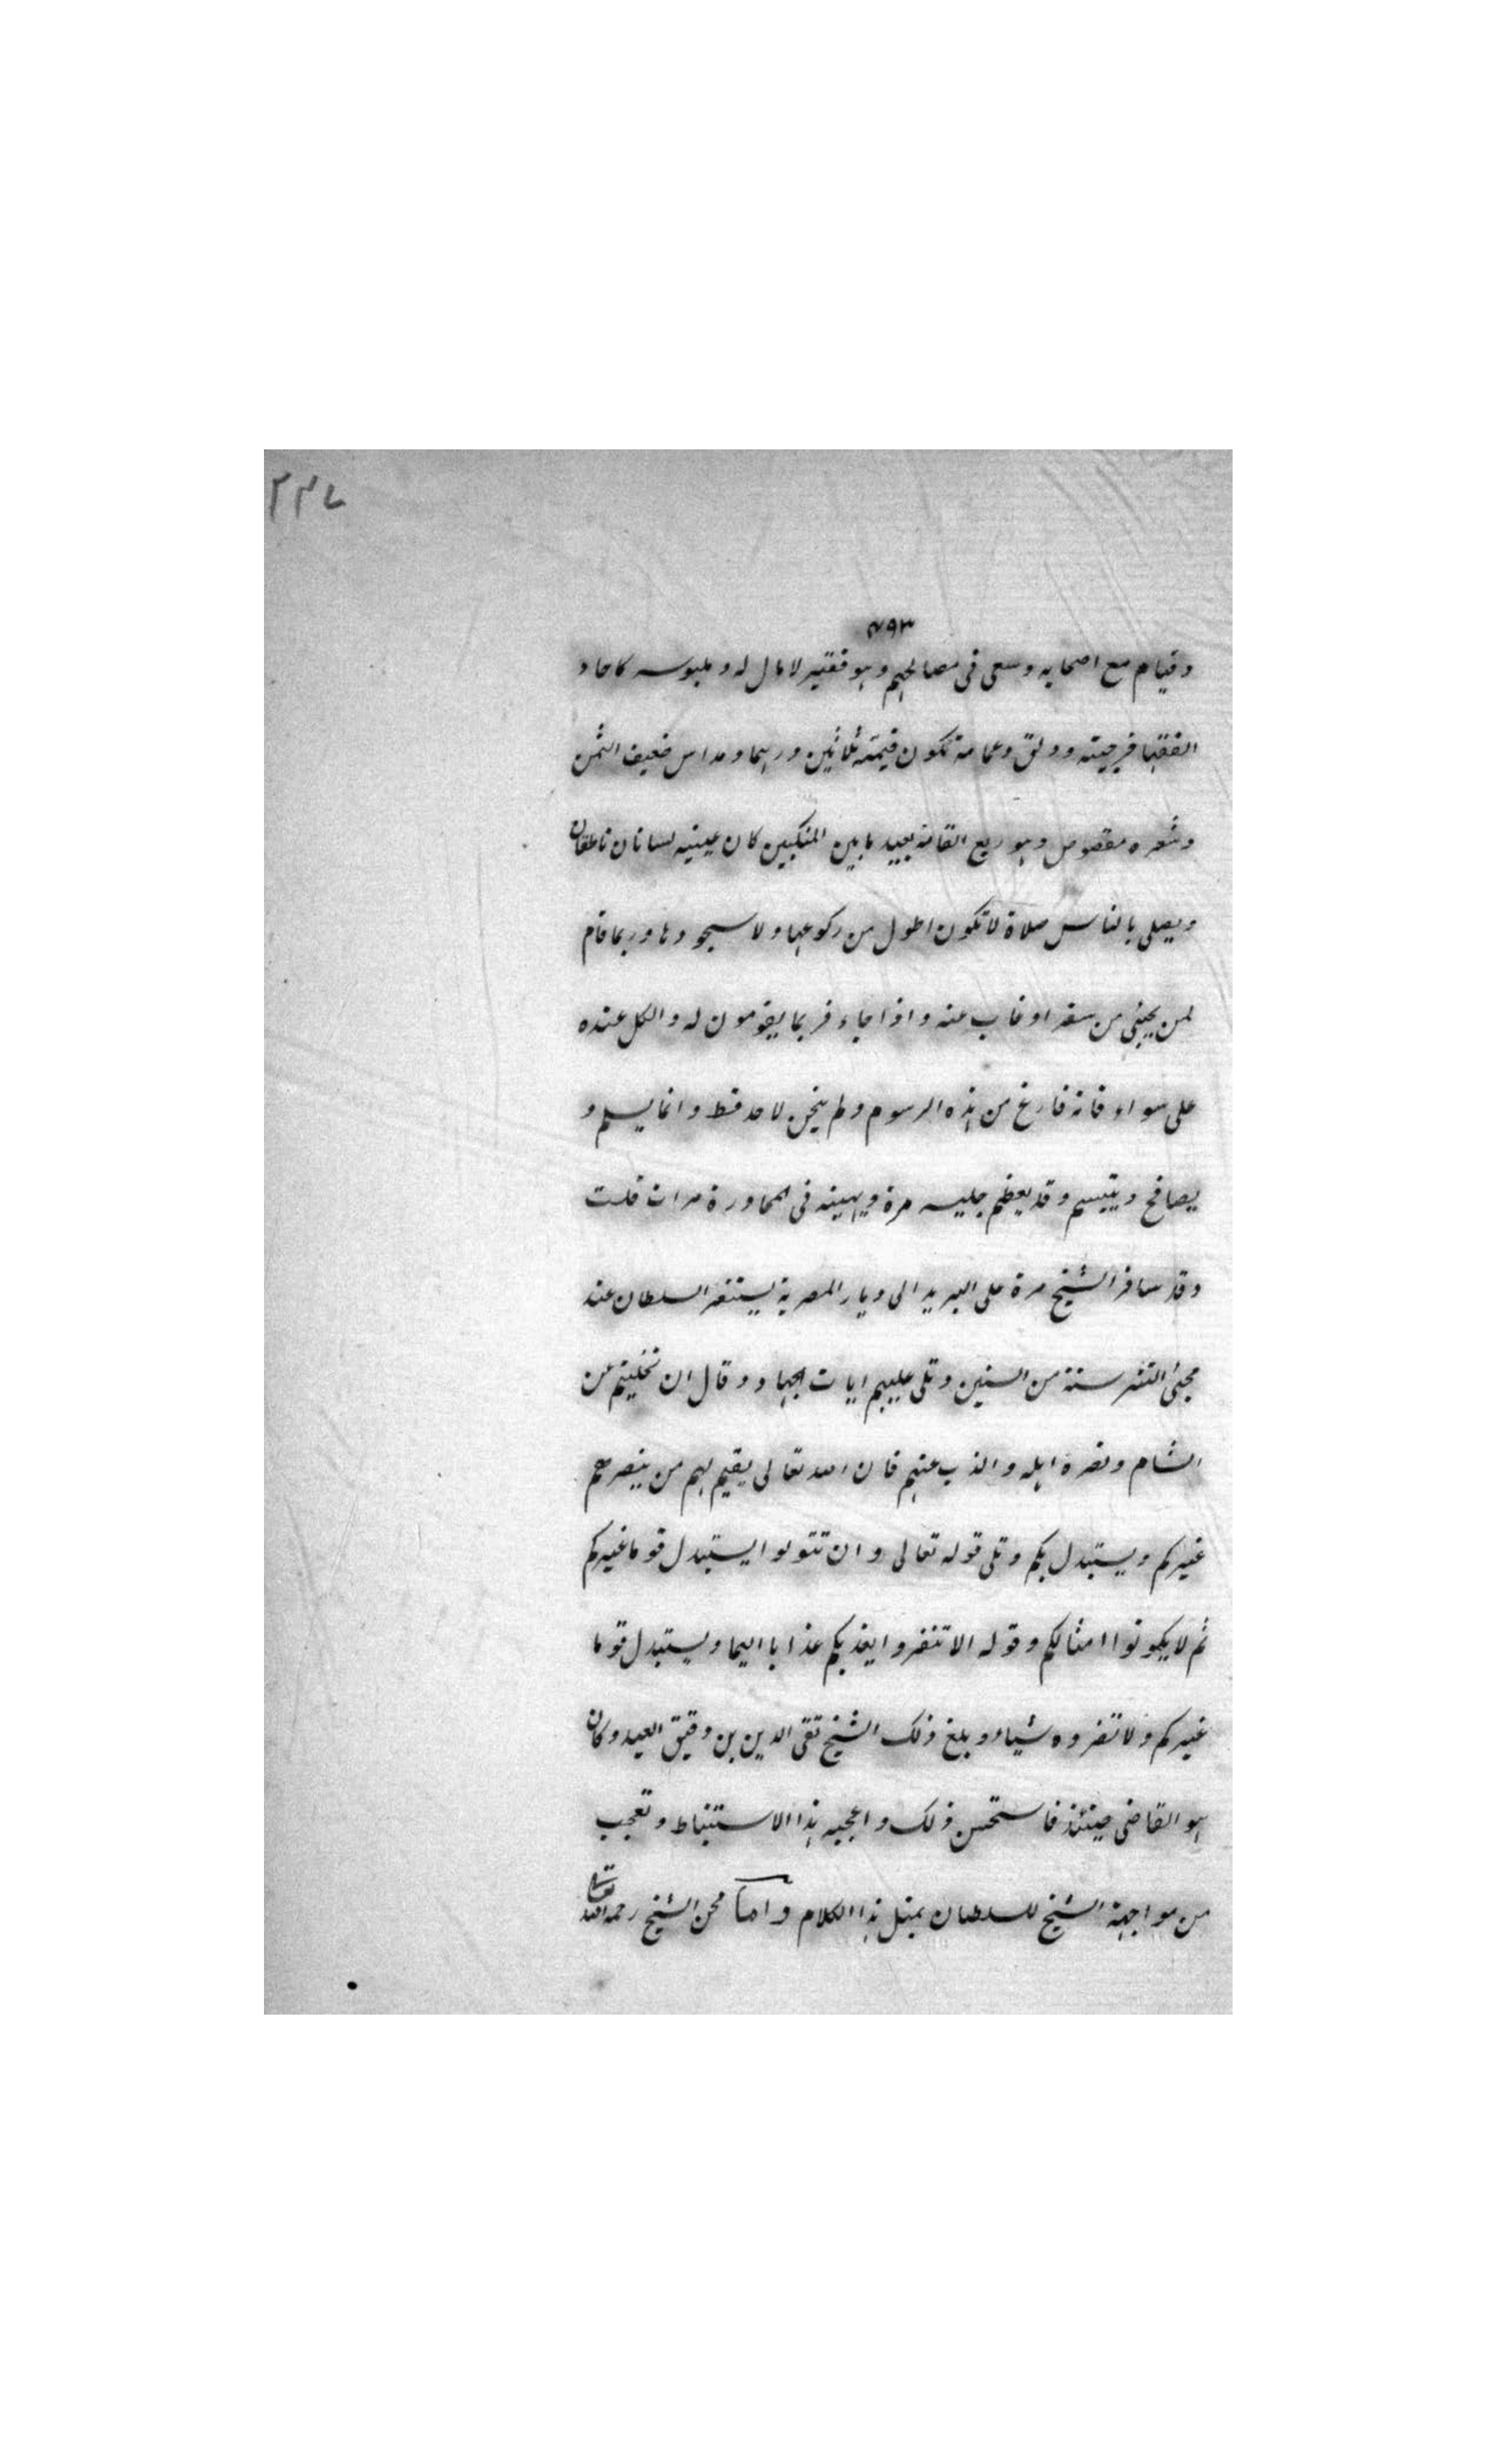 ٢٣٧
٤٩٣
وقيام مع اصحابه وسعى فى مصالحهم وهو فقير لا مال له وملبوسه كاحاد
الفقها فرجية ودلق وعمامة تكون قيمة ثلاثين درهما ومداس ضعيف الثمن
وشعره مقصوص وهو ربع القامة بعيد ما بين المنكبين كان عينيه لسانان ناطقان
ويصلى بالناس صلاة لا تكون اطول من ركوعها ولا سجودها وربما قام
لمن يجيئ من سفر او غاب عنه واذا جاء فربما يقومون له والكل عنده
على سواء فانه فارغ من هذه الرسوم ولم ينحن لاحد قط وانما يسلم و
يصافح ويتبسم وقد يعظم جليسه مرة ويهينه فى المحاورة مرات قلت
وقد سافر الشيخ مرة على البريد الى ديار المصرية يستنفر السلطان عند
مجيئ التتر سنة من السنين وتلى عليهم ايات الجهاد وقال ان تخليتم عن
الشام ونصرة اهله والذب عنهم فان الله تعالى يقيم لهم من ينصرهم
غيركم ويستبدل بكم وتلى قوله تعالى وان تتولوا يستبدل قوما غيركم
ثم لا يكونوا امثالكم وقوله الا تنفروا يعذبكم عذابا اليما ويستبدل قوما
غيركم ولا تضروه شياء وبلغ ذلك الشيخ تقى الدين بن دقيق العيد وكان
هو القاضى حينئذ فاستحسن ذلك واعجبه هذا الاستنباط وتعجب
من مواجهة الشيخ للسلطان بمثل هذا الكلام واما محن الشيخ رحمه الله تعالى